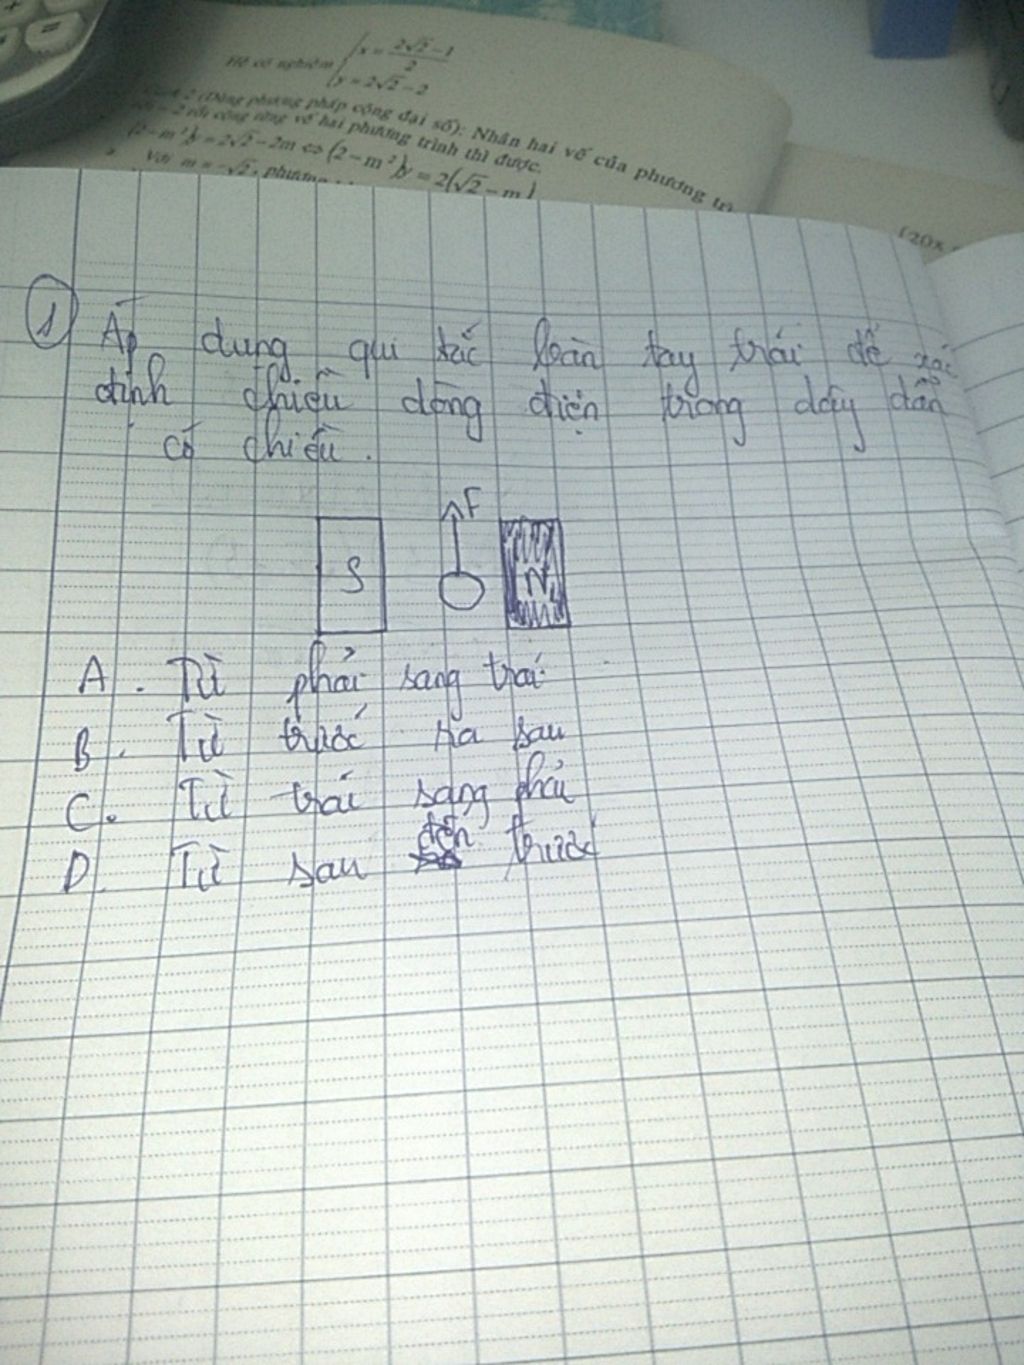 Hệ có nghiệm { x = (2√2 − 1)/2
y = 2√2 − 2
2 (Dùng phương pháp cộng đại số): Nhân hai vế của phương
− 2 rồi cộng từng vế hai phương trình thì được.
(2 − m²)y = 2√2 − 2m ⇔ (2 − m²)y = 2(√2 − m)
Với m = −√2, phương
(20x
1 Áp dụng qui tắc bàn tay trái để xác
định chiều dòng điện trong dây dẫn
có chiều.
F
S N
A. Từ phải sang trái
B. Từ trước ra sau
C. Từ trái sang phải
D. Từ sau đến trước